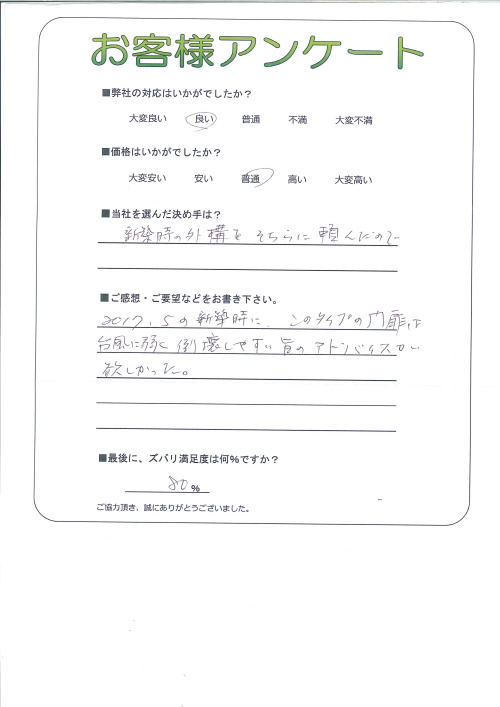 お客様アンケート
■弊社の対応はいかがでしたか？
大変良い 良い 普通 不満 大変不満
■価格はいかがでしたか？
大変安い 安い 普通 高い 大変高い
■当社を選んだ決め手は？
新築時の外構をそちらに頼んだので
■ご感想・ご要望などをお書き下さい。
2017.5の新築時に、このタイプの門扉は
台風に弱く倒壊しやすい旨のアドバイスが
欲しかった。
■最後に、ズバリ満足度は何%ですか？
80 %
ご協力頂き、誠にありがとうございました。